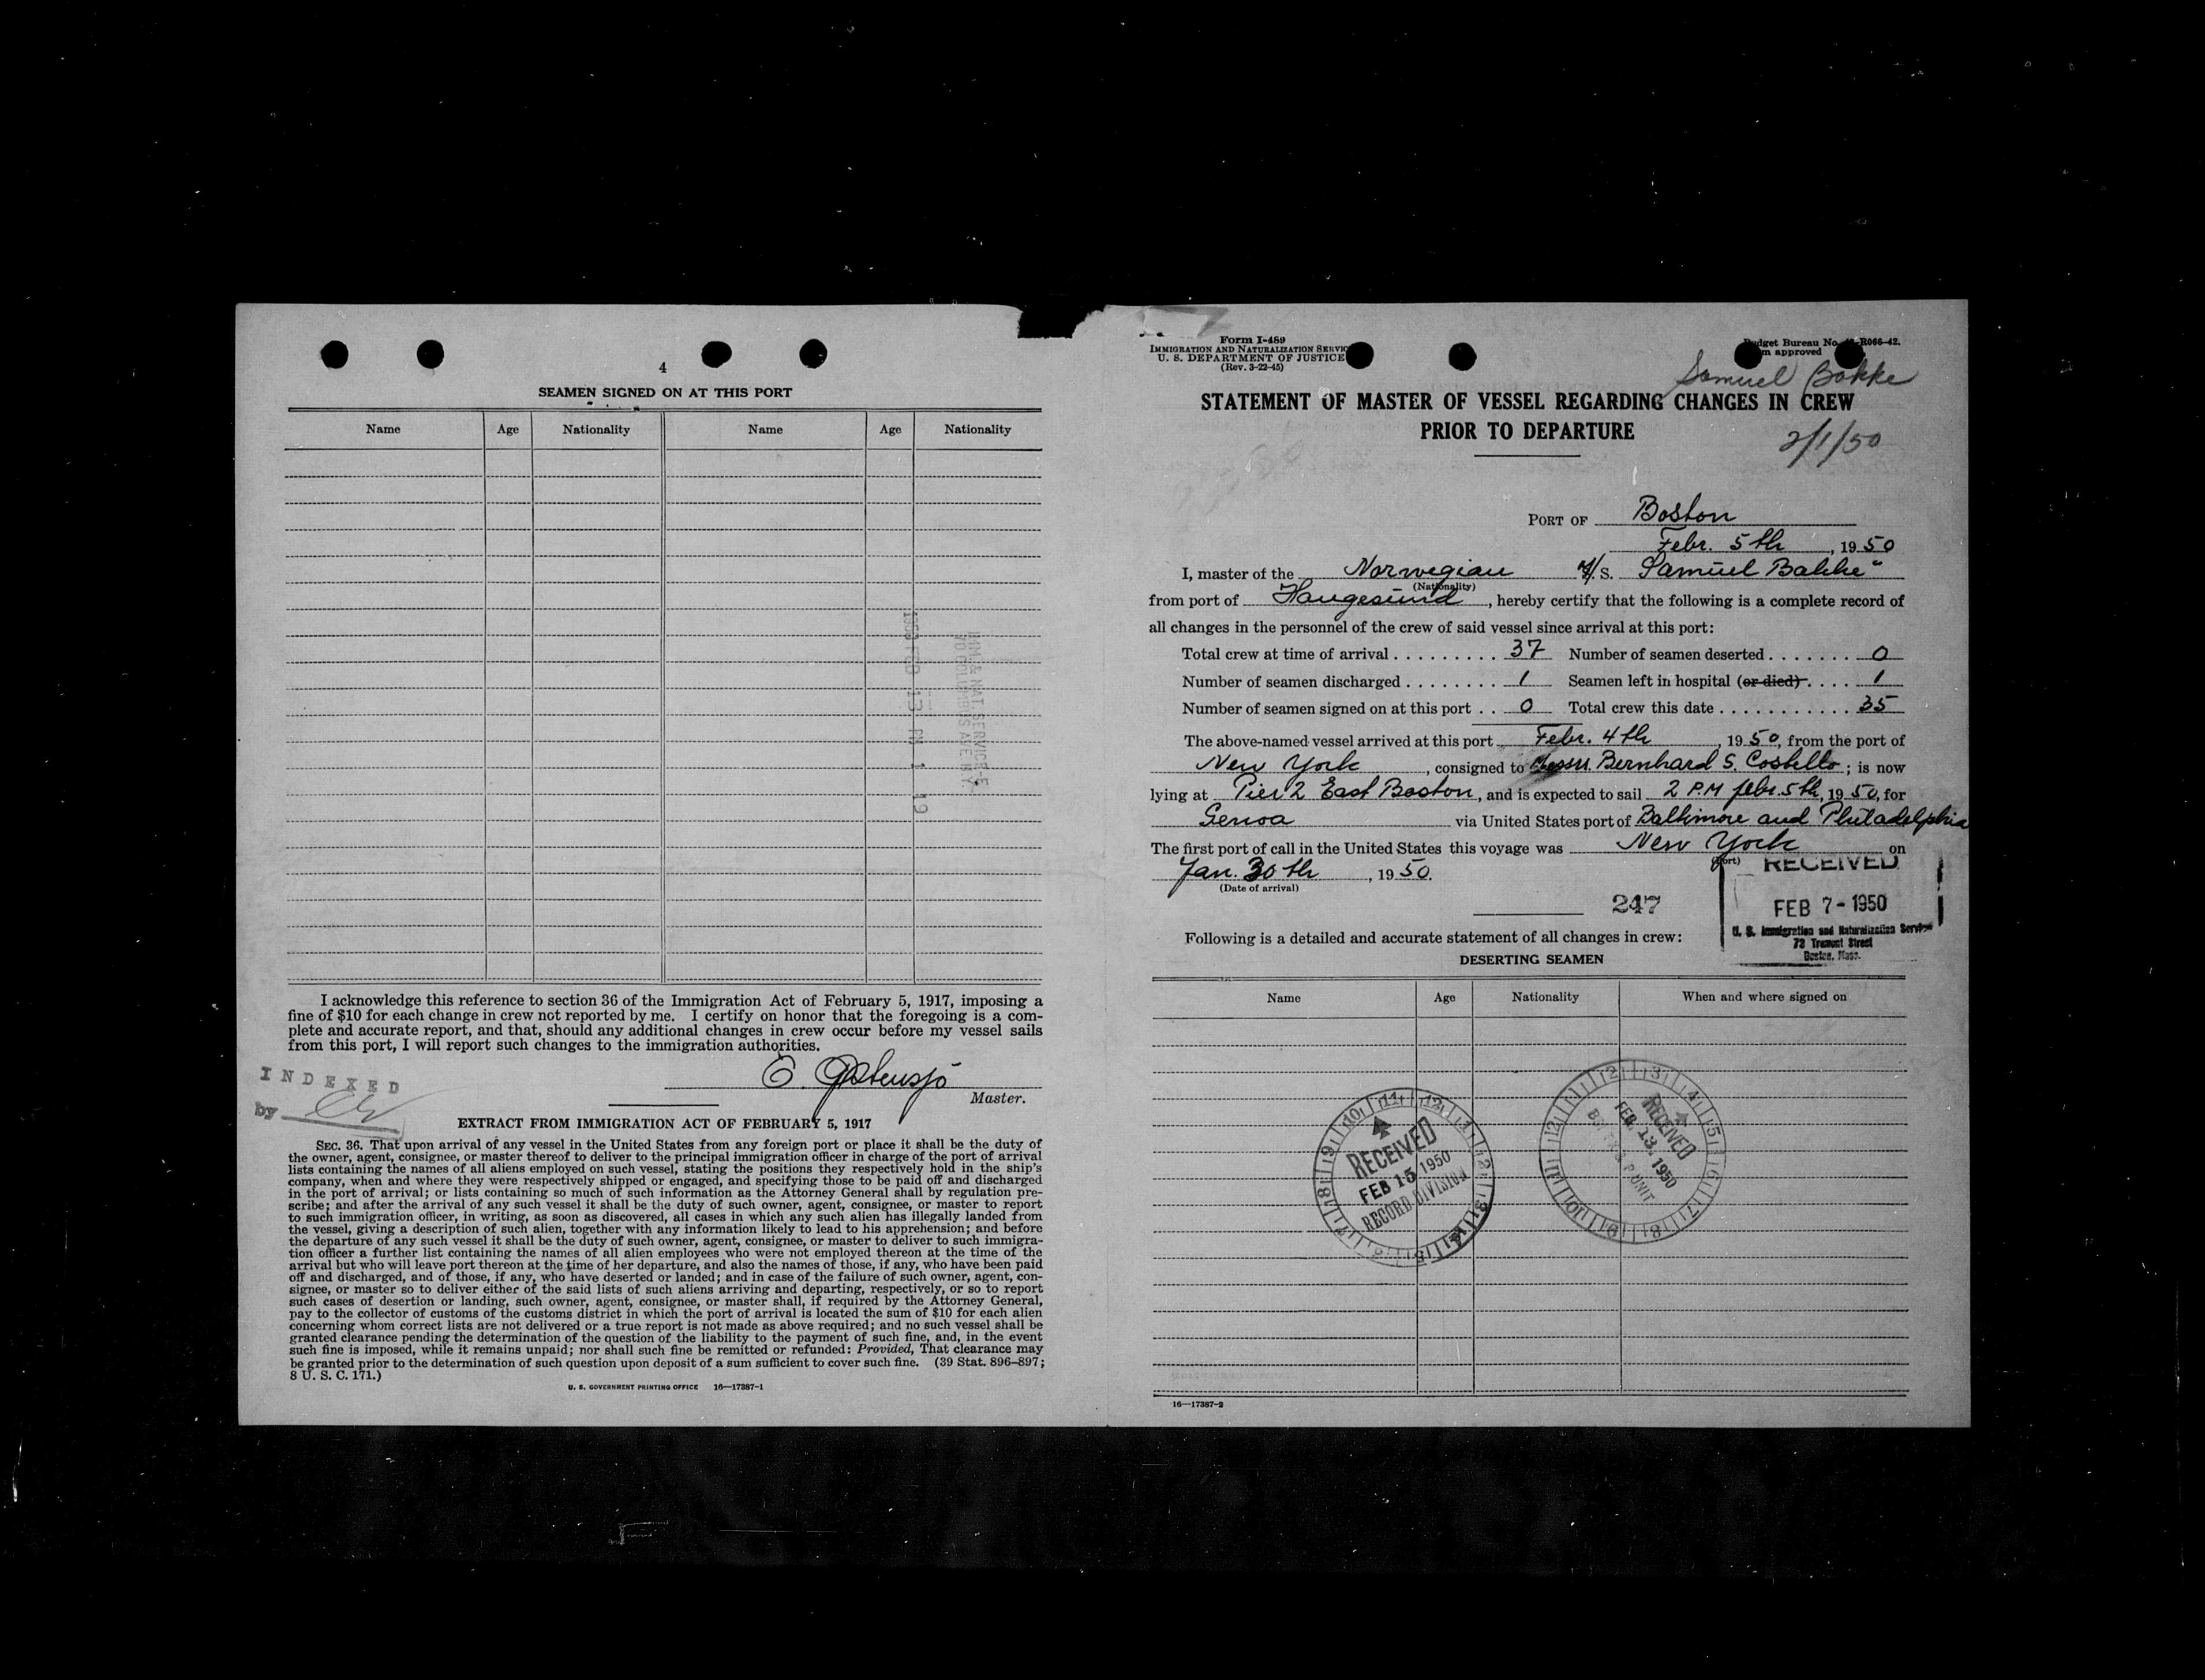 4
SEAMEN SIGNED ON AT THIS PORT
Name Age Nationality Name Age Nationality
IMM. & NAT. SERVICE
1950 FEB 13 PM 1 19
I acknowledge this reference to section 36 of the Immigration Act of February 5, 1917, imposing a
fine of $10 for each change in crew not reported by me. I certify on honor that the foregoing is a com-
plete and accurate report, and that, should any additional changes in crew occur before my vessel sails
from this port, I will report such changes to the immigration authorities.
INDEXED
by
Master.
EXTRACT FROM IMMIGRATION ACT OF FEBRUARY 5, 1917
SEC. 36. That upon arrival of any vessel in the United States from any foreign port or place it shall be the duty of
the owner, agent, consignee, or master thereof to deliver to the principal immigration officer in charge of the port of arrival
lists containing the names of all aliens employed on such vessel, stating the positions they respectively hold in the ship's
company, when and where they were respectively shipped or engaged, and specifying those to be paid off and discharged
in the port of arrival; or lists containing so much of such information as the Attorney General shall by regulation pre-
scribe; and after the arrival of any such vessel it shall be the duty of such owner, agent, consignee, or master to report
to such immigration officer, in writing, as soon as discovered, all cases in which any such alien has illegally landed from
the vessel, giving a description of such alien, together with any information likely to lead to his apprehension; and before
the departure of any such vessel it shall be the duty of such owner, agent, consignee, or master to deliver to such immigra-
tion officer a further list containing the names of all alien employees who were not employed thereon at the time of the
arrival but who will leave port thereon at the time of her departure, and also the names of those, if any, who have been paid
off and discharged, and of those, if any, who have deserted or landed; and in case of the failure of such owner, agent, con-
signee, or master so to deliver either of the said lists of such aliens arriving and departing, respectively, or so to report
such cases of desertion or landing, such owner, agent, consignee, or master shall, if required by the Attorney General,
pay to the collector of customs of the customs district in which the port of arrival is located the sum of $10 for each alien
concerning whom correct lists are not delivered or a true report is not made as above required; and no such vessel shall be
granted clearance pending the determination of the question of the liability to the payment of such fine, and, in the event
such fine is imposed, while it remains unpaid; nor shall such fine be remitted or refunded: Provided, That clearance may
be granted prior to the determination of such question upon deposit of a sum sufficient to cover such fine. (39 Stat. 896–897;
8 U. S. C. 171.)
U. S. GOVERNMENT PRINTING OFFICE 16—17387-1
Form I-489
IMMIGRATION AND NATURALIZATION SERVIC
U. S. DEPARTMENT OF JUSTICE
(Rev. 3-22-45)
dget Bureau No. R066-42.
m approved
Samuel Bakke
STATEMENT OF MASTER OF VESSEL REGARDING CHANGES IN CREW
PRIOR TO DEPARTURE
2/1/50
PORT OF Boston
Febr. 5th, 1950
I, master of the Norwegian M/S. Samuel Bakke"
(Nationality)
from port of Haugesund, hereby certify that the following is a complete record of
all changes in the personnel of the crew of said vessel since arrival at this port:
Total crew at time of arrival . . . . . . . . . 37 Number of seamen deserted . . . . . . . 0
Number of seamen discharged . . . . . . . . 1 Seamen left in hospital (or died) . . . . 1
Number of seamen signed on at this port . . 0 Total crew this date . . . . . . . . . . . 35
The above-named vessel arrived at this port Febr. 4th, 1950, from the port of
New York, consigned to Messrs. Bernhard S. Costello; is now
lying at Pier 2 East Boston, and is expected to sail 2 P.M febr. 5th, 1950, for
Genoa via United States port of Baltimore and Philadelphia
The first port of call in the United States this voyage was New York on
(Port)
Jan. 30th, 1950.
(Date of arrival)
RECEIVED
FEB 7 - 1950
U. S. Immigration and Naturalization Service
73 Tremont Street
Boston, Mass.
247
Following is a detailed and accurate statement of all changes in crew:
DESERTING SEAMEN
Name Age Nationality When and where signed on
RECEIVED
FEB 15 1950
RECORD DIVISION
RECEIVED
FEB. 13. 1950
16—17387-2